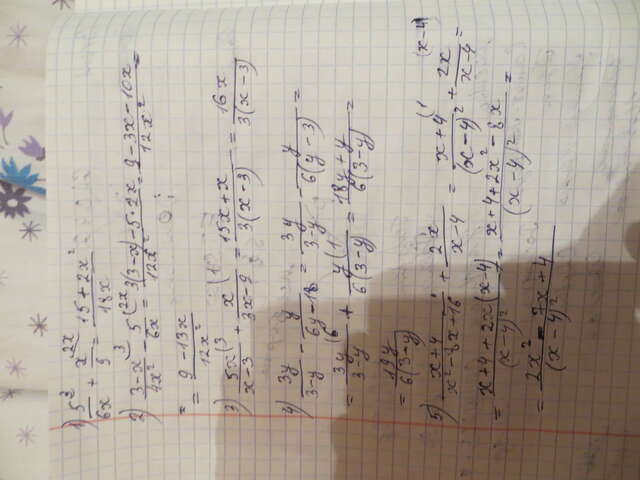 1) 5/6x + x/9 = (15+2x²)/18x
2) (3-x)/4x² - 5/6x = (3(3-x)-5·2x)/12x² = (9-3x-10x)/12x² =
= (9-13x)/12x²
3) 5x/(x-3) + x/(3x-9) = (15x+x)/3(x-3) = 16x/3(x-3)
4) 3y/(3-y) - y/(6y-18) = 3y/(3-y) - y/6(y-3) =
= 3y/(3-y) + y/6(3-y) = (18y+y)/6(3-y) =
= 19y/6(3-y)
5) (x+4)/(x²-8x+16) + 2x/(x-4) = (x+4)/(x-4)² + 2x/(x-4) =
= (x+4+2x(x-4))/(x-4)² = (x+4+2x²-8x)/(x-4)² =
= (2x²-7x+4)/(x-4)²